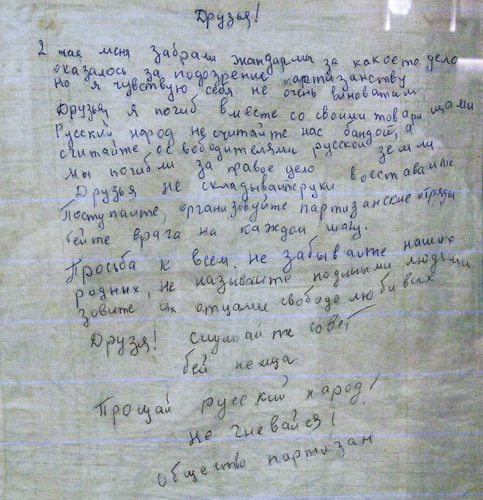 Друзья!
2 мая меня забрали жандармы за какое то дело
оказалось за подозрение партизанству
Но я чувствую себя не очень виноватым
Друзья, я погиб вместе со своими товарищами
Русский народ не считайте нас бандой, а
считайте освободителями русской земли
Мы погибли за правое дело восставайте
Друзья не складывайте руки
Поступайте, организовуйте партизанские отряды
бейте врага на каждом шагу.
Просьба к всем. не забывайте наших
родных, не называйте подлыми людьми
зовите их отцами свободо любивых
Друзя! слушайте совет
бей немца
Прощай русский народ!
Не гневайся!
Общество партизан